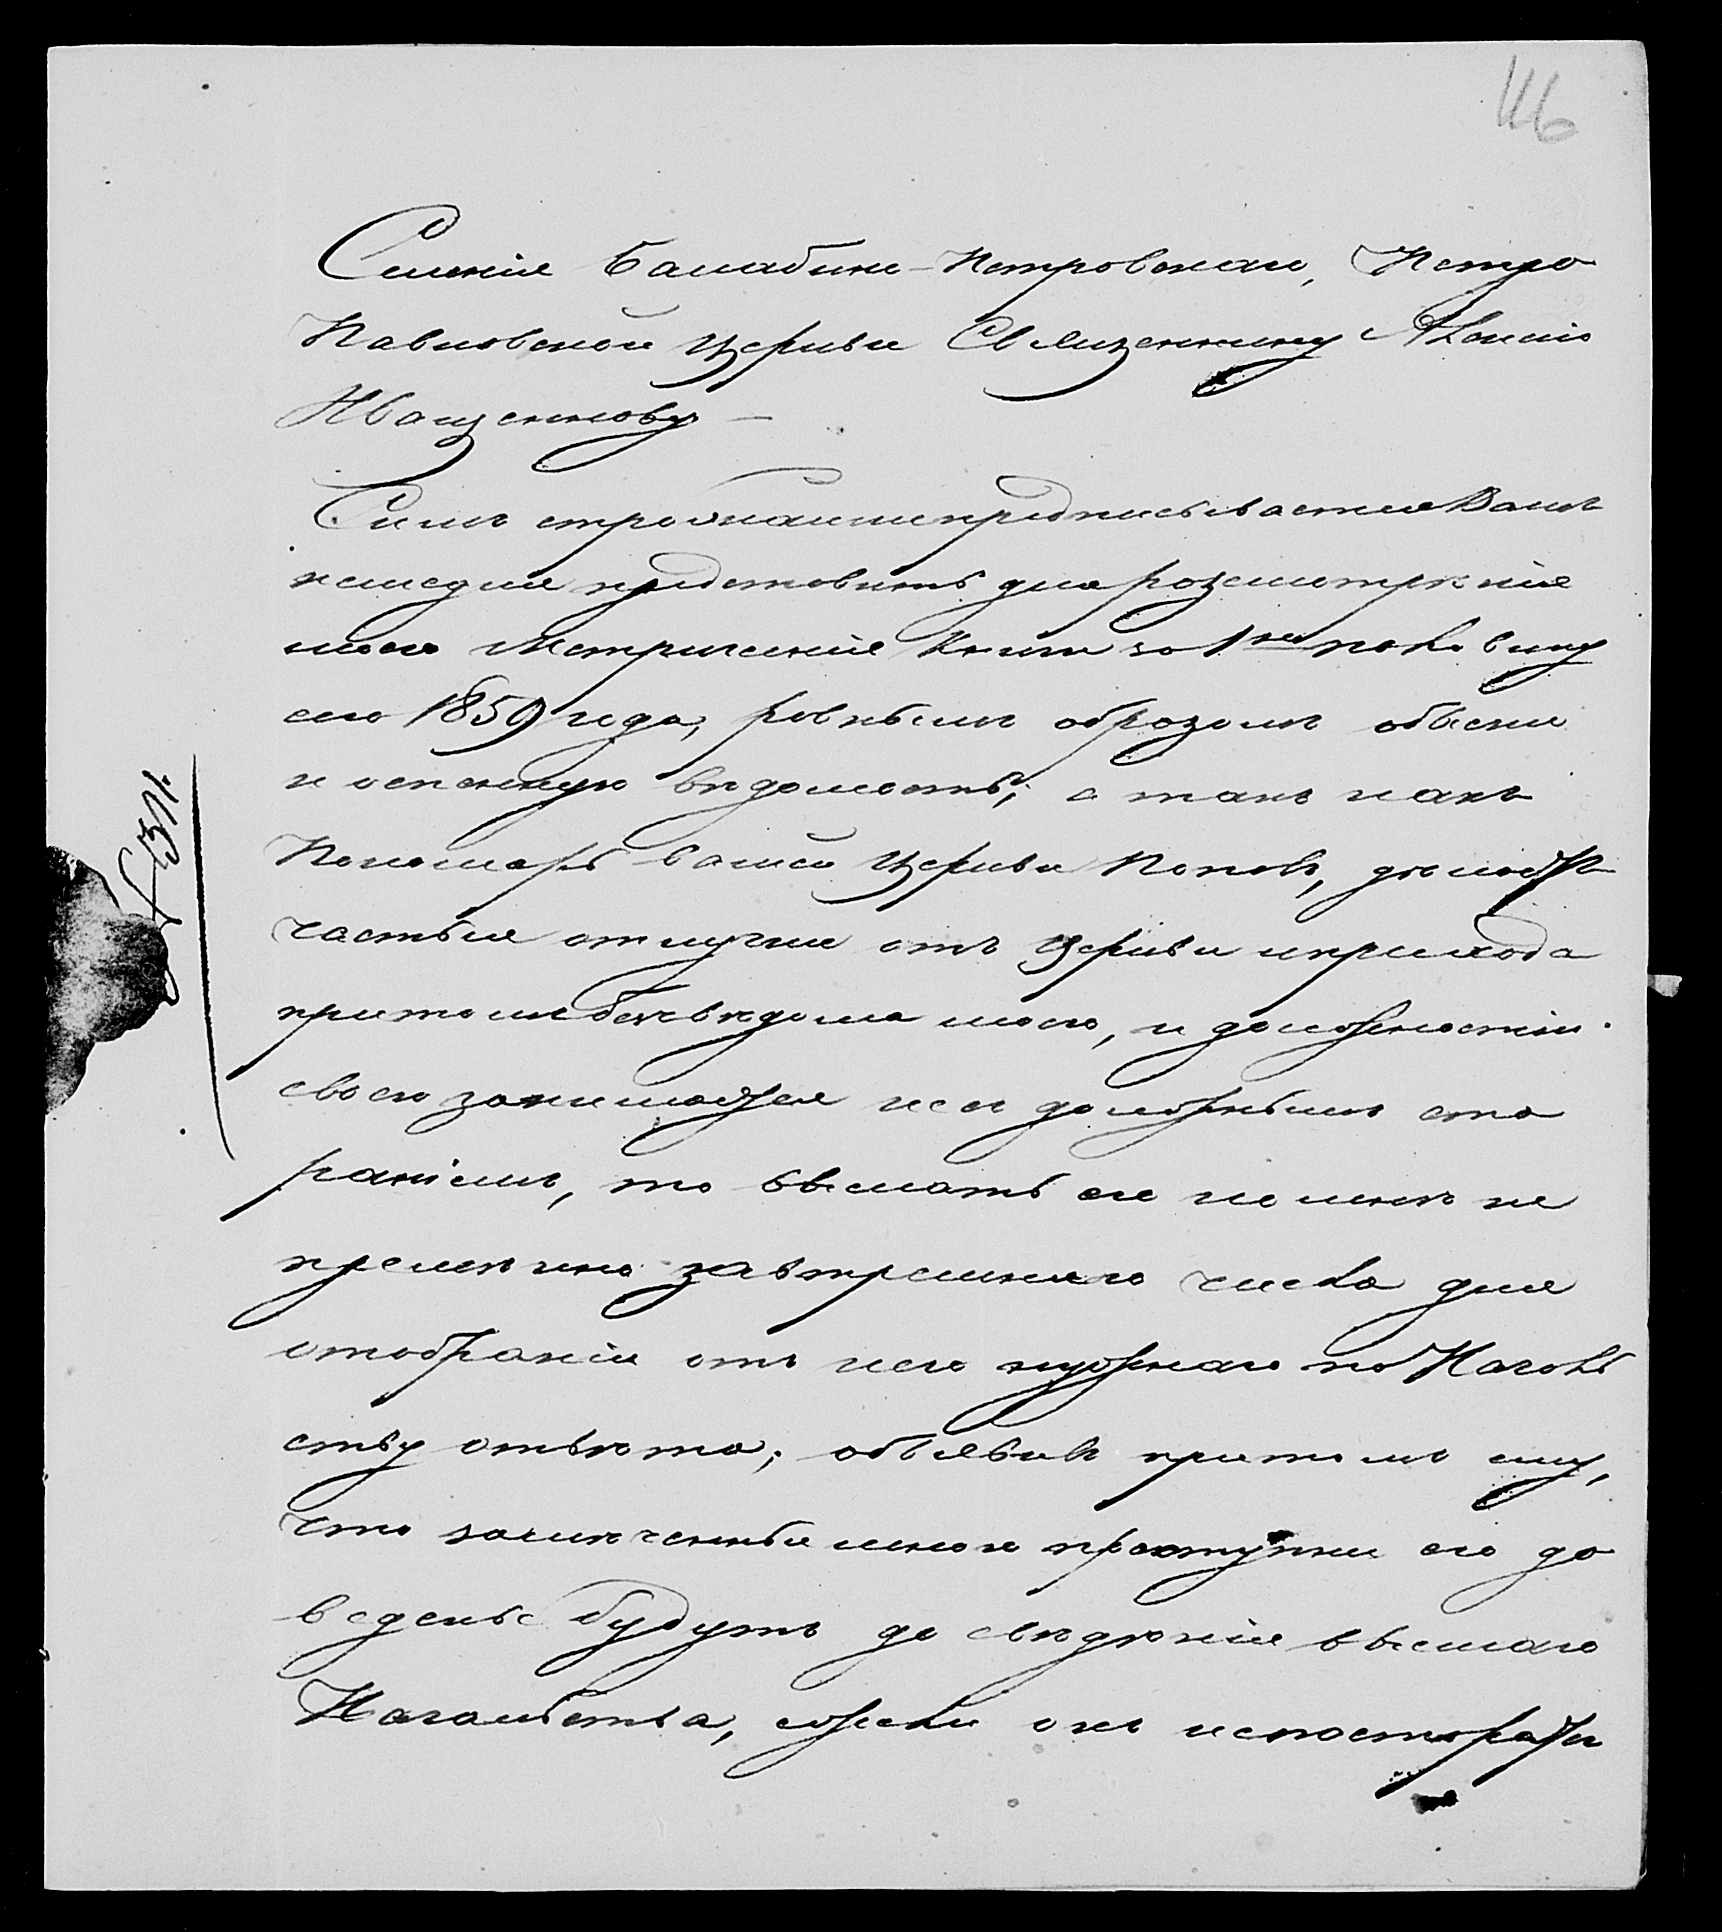 116
Селенія Балабино-Петровскаго, Петро
Павловской Церкви Священнику Алексію
Иващенкову —
Симъ строжайше предписывается Вамъ
немедля представить для розсмотренія
моего Метрическіе Книги за 1ю половину
сего 1859 года, ровнымъ образомъ объ
и оспенную вѣдомость; а такъ какъ
Пономарь вашей Церкви Поповъ, дѣлаетъ
частыя отлучки отъ Церкви и прихода
притомъ безъ вѣдома моего, и должностію
своею занимается не съ должнымъ ста
раніемъ, то выслать его ко мнѣ не
премѣнно завтрешняго числа для
отобранія отъ него нужнаго по Началь
ству отвѣта; объявивъ притомъ ему,
что замѣченные мною проступки его до
ведены будутъ до свѣдѣнія высшаго
Начальства, ежели онъ не постарает
№ 131.